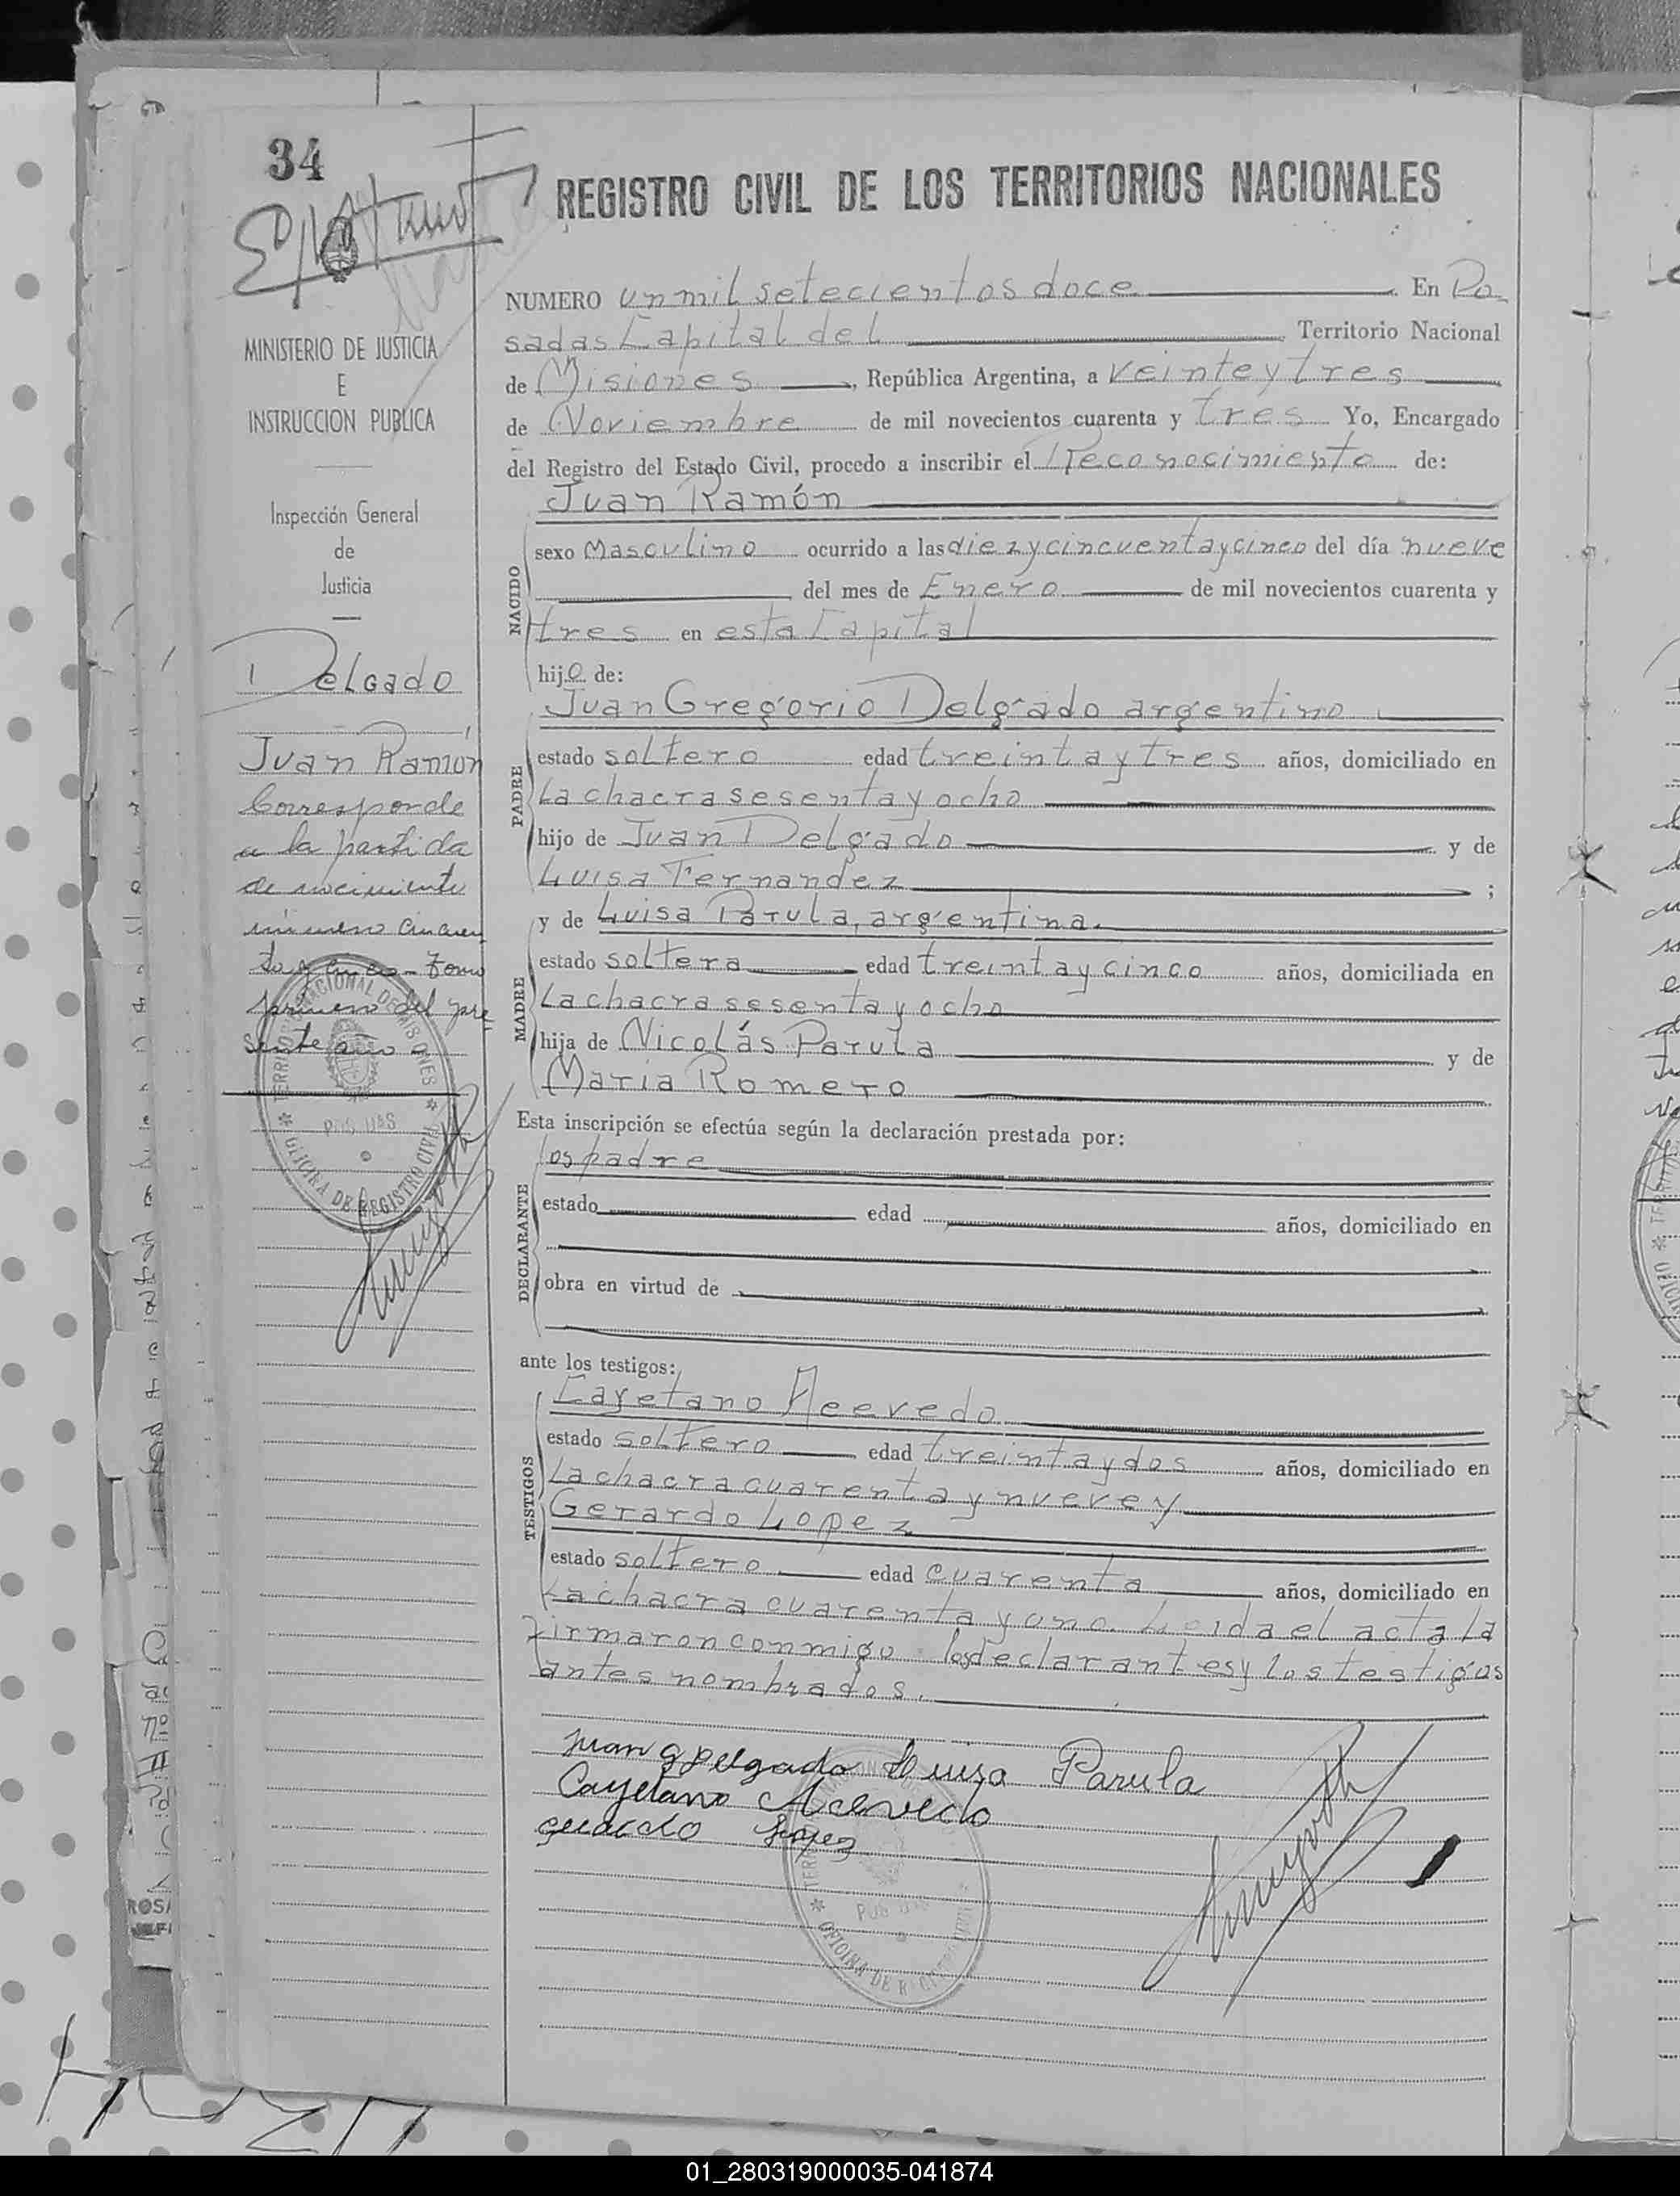 34
REGISTRO CIVIL DE LOS TERRITORIOS NACIONALES
MINISTERIO DE JUSTICIA
E
INSTRUCCION PUBLICA
Inspección General
de
Justicia
Delgado
Juan Ramón
Corresponde
a la partida
de nacimiento
número cincuen
ta y - tomo
primero del pre
sente año -
TERRITORIO NACIONAL DE MISIONES
POSADAS
OFICINA DE REGISTRO CIVIL
NUMERO un mil setecientos doce En Po
sadas Capital del Territorio Nacional
de Misiones, República Argentina, a veinte y tres
de Noviembre de mil novecientos cuarenta y tres Yo, Encargado
del Registro del Estado Civil, procedo a inscribir el Reconocimiento de:
Juan Ramón
NACIDO
sexo Masculino ocurrido a las diez y cincuenta y cinco del día nueve
del mes de Enero de mil novecientos cuarenta y
tres en esta Capital
hijo de:
Juan Gregorio Delgado argentino
PADRE
estado soltero edad treinta y tres años, domiciliado en
La chacra sesenta y ocho
hijo de Juan Delgado y de
Luisa Fernandez ;
y de Luisa Parula, argentina.
MADRE
estado soltera edad treinta y cinco años, domiciliada en
La chacra sesenta y ocho
hija de Nicolás Parula y de
Maria Romero
Esta inscripción se efectúa según la declaración prestada por:
los padre
DECLARANTE
estado edad años, domiciliado en
obra en virtud de
ante los testigos:
Cayetano Acevedo
TESTIGOS
estado soltero edad treinta y dos años, domiciliado en
La chacra cuarenta y nueve y
Gerardo Lopez
estado soltero edad cuarenta años, domiciliado en
La chacra cuarenta y uno. Leida el acta la
firmaron conmigo los declarantes y los testigos
antes nombrados.
Juan G Delgado Luisa Parula
Cayetano Acevedo
Gerardo Lopez
POSADAS
OFICINA DE REGISTRO CIVIL
01_280319000035-041874